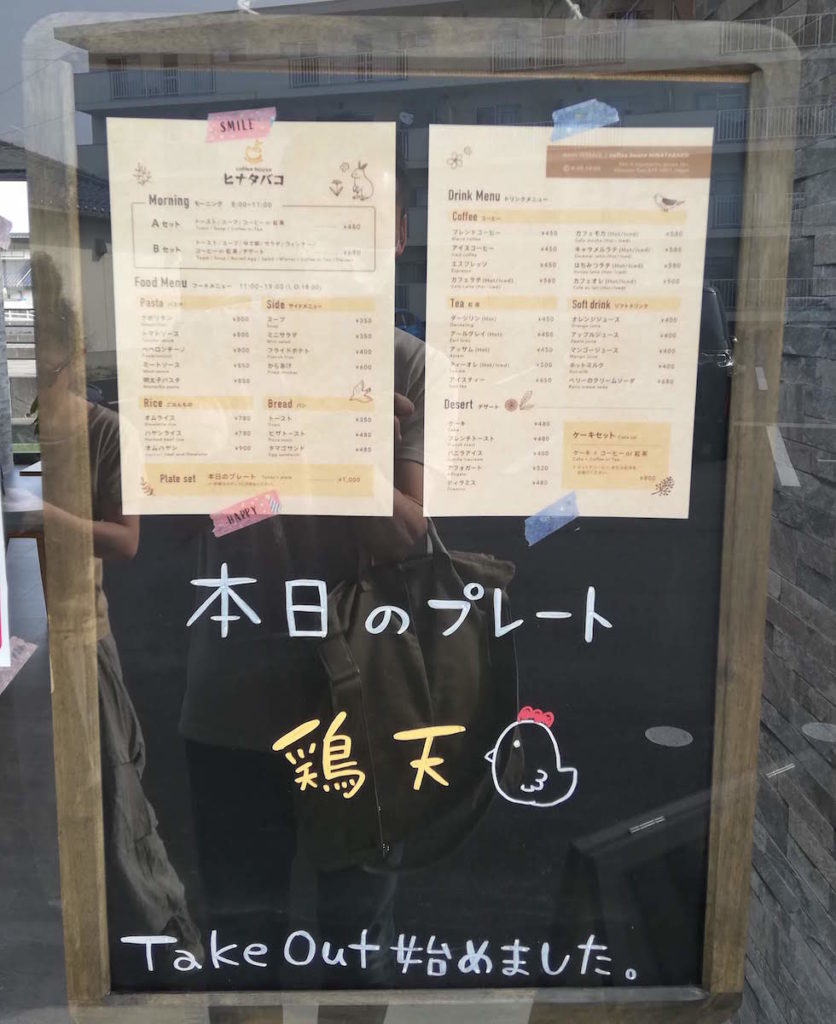 SMILE
coffee house
ヒナタバコ
Morning モーニング 8:00-11:00
Aセット トースト / スープ / コーヒー or 紅茶 ¥480
Toast / Soup / Coffee or Tea
Bセット トースト / スープ / ゆで卵 / サラダ / ウィンナー /
コーヒー or 紅茶 / デザート
Food Menu フードメニュー 11:00-19:00 (L.O.18:00)
Pasta パスタ
ナポリタン ¥800
トマトソース ¥800
ペペロンチーノ ¥800
ミートソース ¥850
明太子パスタ ¥850
Side サイドメニュー
スープ ¥350
Soup
ミニサラダ ¥350
Mini salad
フライドポテト ¥400
French fries
からあげ ¥600
Fried chicken
Rice ごはんもの
オムライス ¥780
ハヤシライス ¥780
オムハヤシ ¥900
Bread パン
トースト ¥350
Toast
ピザトースト ¥480
Pizza toast
タマゴサンド ¥480
Egg sandwich
Plate set 本日のプレート Today's plate ¥1,000
HAPPY
coffee house HINATABAKO
Drink Menu ドリンクメニュー
Coffee コーヒー
ブレンドコーヒー ¥450
Blend coffee
アイスコーヒー ¥450
Iced coffee
エスプレッソ ¥450
Espresso
カフェラテ (Hot/Iced) ¥500
カフェモカ (Hot/Iced) ¥580
Cafe mocha (Hot/Iced)
キャラメルラテ (Hot/Iced) ¥580
Caramel latte (Hot/Iced)
はちみつラテ (Hot/Iced) ¥580
Honey latte (Hot/Iced)
カフェオレ (Hot/Iced) ¥500
Cafe au lait (Hot/Iced)
Tea 紅茶
ダージリン (Hot) ¥450
Darjeeling
アールグレイ (Hot) ¥450
Earl Grey
アッサム (Hot) ¥450
Assam
ティーオレ (Hot/Iced) ¥500
アイスティー ¥450
Iced tea
Soft drink ソフトドリンク
オレンジジュース ¥400
Orange juice
アップルジュース ¥400
Apple juice
マンゴージュース ¥400
Mango juice
ホットミルク ¥400
Hot milk
ベリーのクリームソーダ ¥680
Desert デザート
ケーキ ¥480
Cake
フレンチトースト ¥480
French toast
バニラアイス ¥400
アフォガート ¥520
Affogato
ティラミス ¥480
Tiramisu
ケーキセット Cake set
ケーキ + コーヒー or 紅茶
Cake + Coffee or Tea
¥800
本日のプレート
鶏天
Take Out 始めました。